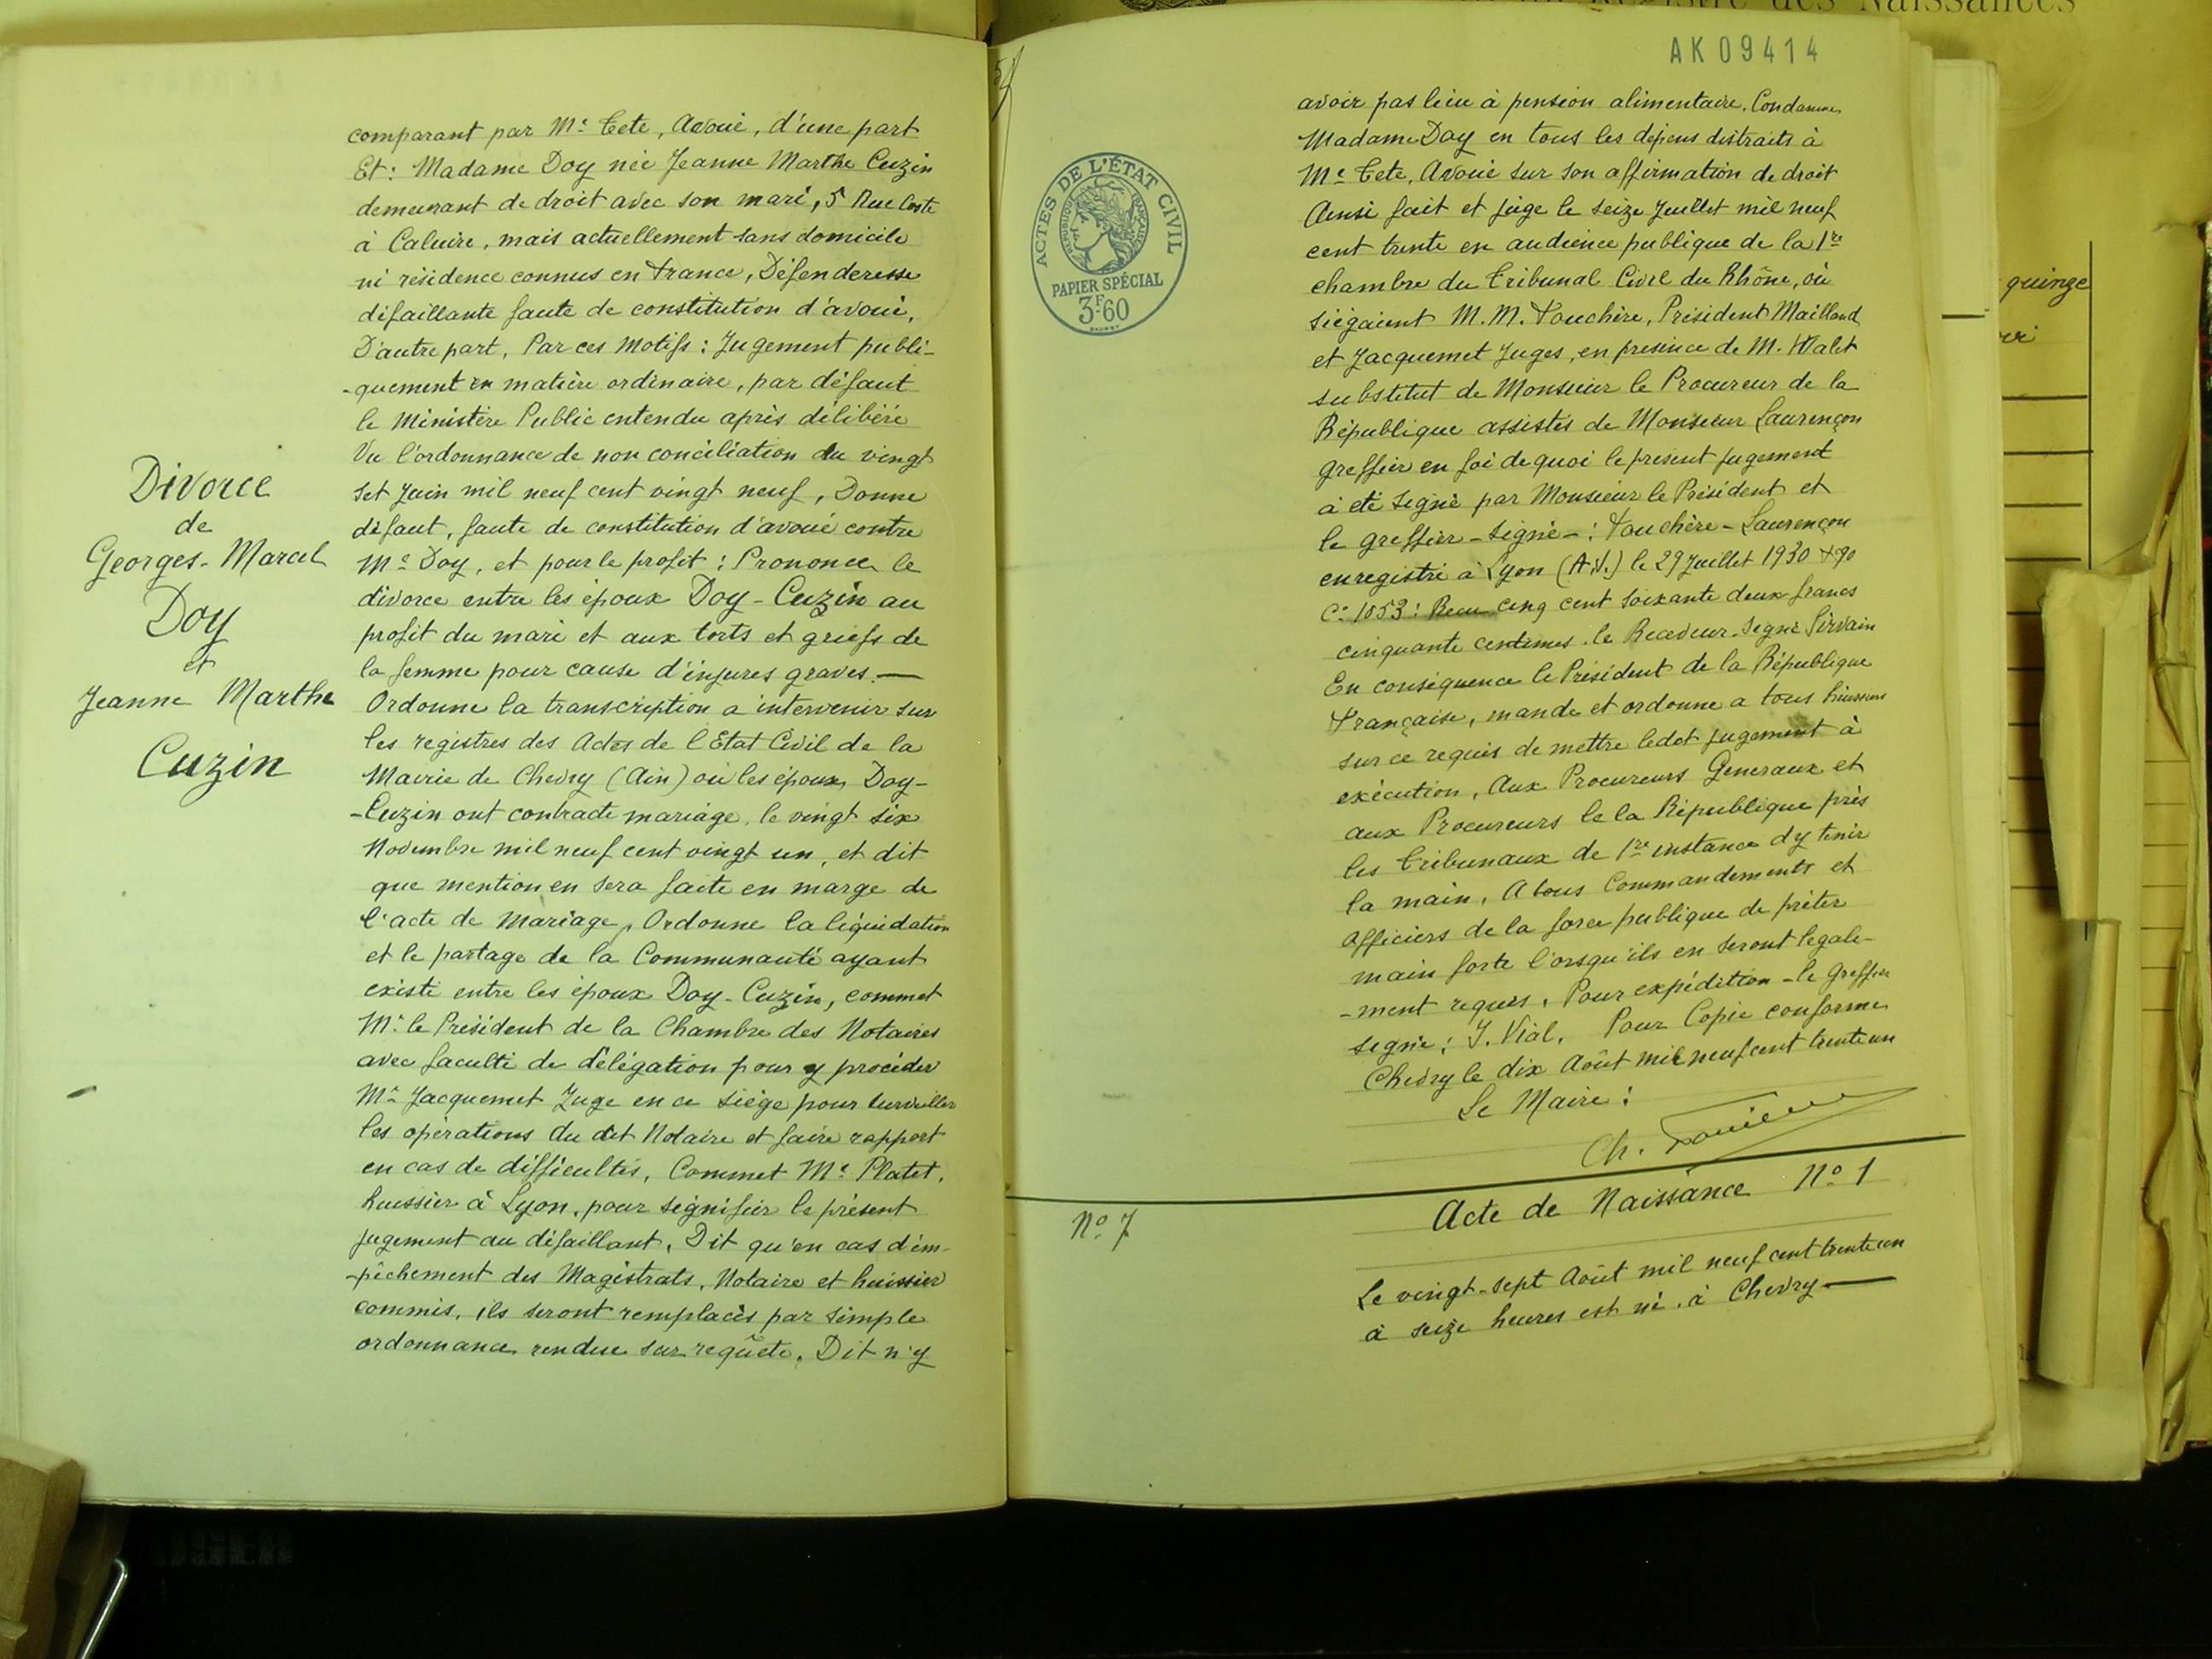 comparant par Me Tete, Avoué, d'une part
Et : Madame Doy née Jeanne Marthe Cuzin
demeurant de droit avec son mari, 5 Rue Coste
à Caluire, mais actuellement sans domicile
ni résidence connus en France, Défenderesse
défaillante faute de constitution d'avoué,
D'autre part, Par ces Motifs : Jugement publi-
-quement en matière ordinaire, par défaut
le Ministère Public entendu après délibéré
Vu l'ordonnance de non conciliation du vingt
set Juin mil neuf cent vingt neuf, Donne
défaut, faute de constitution d'avoué contre
Me Doy, et pour le profit : Prononce le
divorce entre les époux Doy-Cuzin au
profit du mari et aux torts et griefs de
la femme pour cause d'injures graves. —
Ordonne la transcription a intervenir sur
les registres des Actes de l'Etat Civil de la
Mairie de Chevry (Ain) où les époux Doy-
-Cuzin ont contracté mariage, le vingt six
Novembre mil neuf cent vingt un, et dit
que mention en sera faite en marge de
l'acte de Mariage, Ordonne la liquidation
et le partage de la Communauté ayant
existé entre les époux Doy-Cuzin, commet
Mr le Président de la Chambre des Notaires
avec faculté de délégation pour y procéder
Mr Jacquemet Juge en ce siège pour surveiller
les opérations du dit Notaire et faire rapport
en cas de difficultés, Commet Me Platet,
huissier à Lyon, pour signifier le présent
jugement au défaillant, Dit qu'en cas d'em-
-pêchement des Magistrats, Notaire et huissier
commis, ils seront remplacés par simple
ordonnance rendue sur requête, Dit n'y
Divorce
de
Georges-Marcel
Doy
et
Jeanne Marthe
Cuzin
AK 09414
ACTES DE L'ÉTAT CIVIL
RÉPUBLIQUE FRANÇAISE
PAPIER SPÉCIAL
3F60
avoir pas lieu à pension alimentaire. Condamne
Madame Doy en tous les dépens distraits à
Me Tete, Avoué sur son affirmation de droit
Ainsi fait et jugé le seize Juillet mil neuf
cent trente en audience publique de la 1re
chambre du Tribunal Civil du Rhône, où
siégaient M.M. Fouchère, Président Mailland
et Jacquemet Juges, en présence de M. Walet
substitut de Monsieur le Procureur de la
République assistés de Monsieur Laurençon
Greffier en foi de quoi le présent jugement
à été signé par Monsieur le Président et
le greffier - Signé - : Fouchère - Laurençon
enregistré à Lyon (A.J.) le 29 Juillet 1930
Ce 1053 : Recu cinq cent soixante deux francs
cinquante centimes. le Receveur. Signé
En conséquence le Président de la République
Française, mande et ordonne a tous huissiers
sur ce requis de mettre ledit jugement à
exécution, Aux Procureurs Generaux et
aux Procureurs le la République près
les Tribunaux de 1re instance d'y tenir
la main, A tous Commandements et
Officiers de la force publique de prêter
main forte l'orsqu'ils en seront légale-
-ment requis, Pour expédition - le Greffier
signé : J. Vial. Pour Copie conforme
Chevry le dix Août mil neuf cent trente un
Le Maire :
Ch.
No 7
Acte de Naissance No 1
Le vingt-sept Août mil neuf cent trente un
à seize heures est né, à Chevry —
Registre des Naissances
quinze